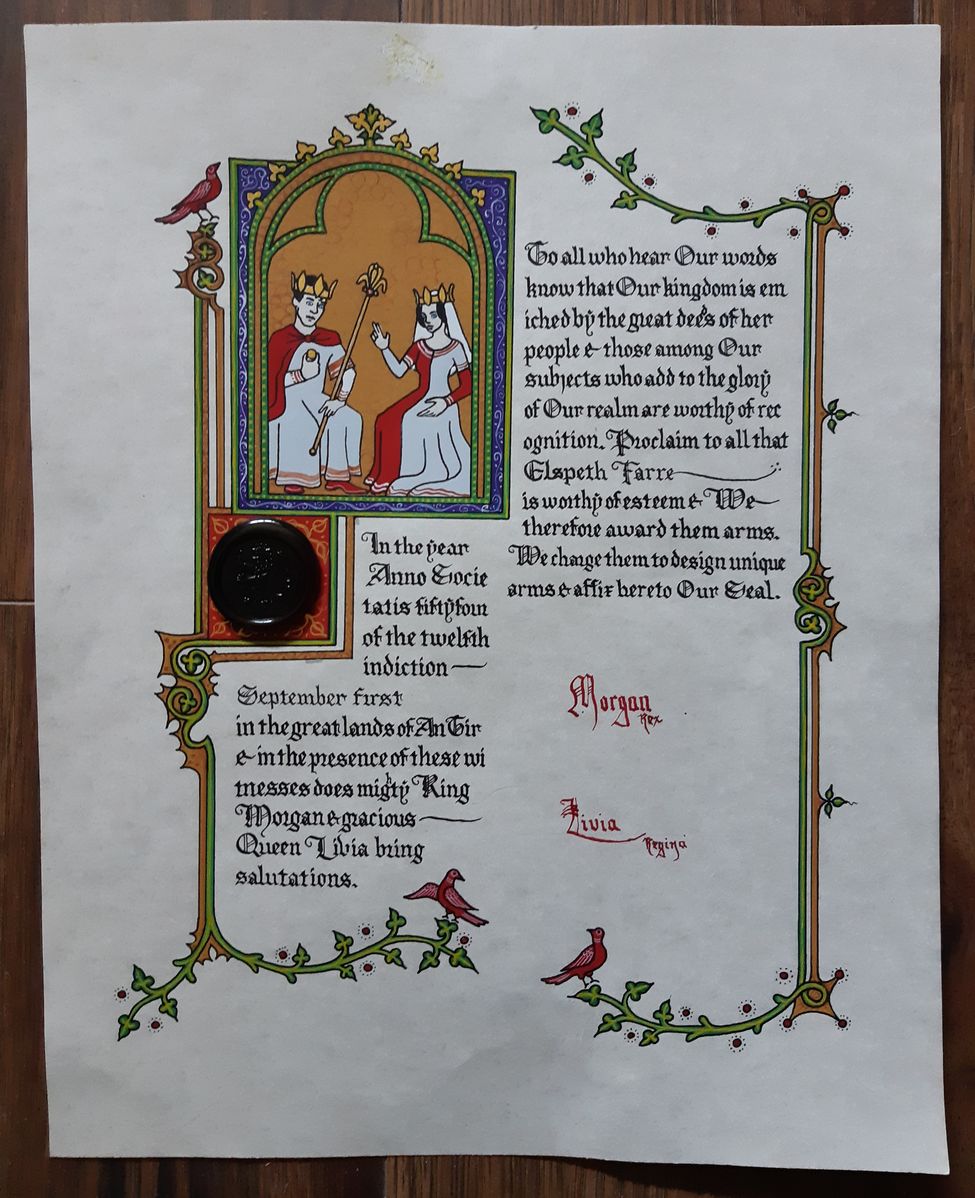 In the year
Anno Socie
tatis fiftyfour
of the twelfth
indiction
September first
in the great lands of An Tir
& in the presence of these wi
tnesses does mighty King
Morgan & gracious
Queen Livia bring
salutations.
To all who hear Our words
know that Our kingdom is em
iched by the great dee's of her
people & those among Our
subjects who add to the glory
of Our realm are worthy of rec
ognition. Proclaim to all that
Elspeth Farre
is worthy of esteem & We
therefore award them arms.
We charge them to design unique
arms & affix hereto Our Seal.
Morgan
Rex
Livia
Regina